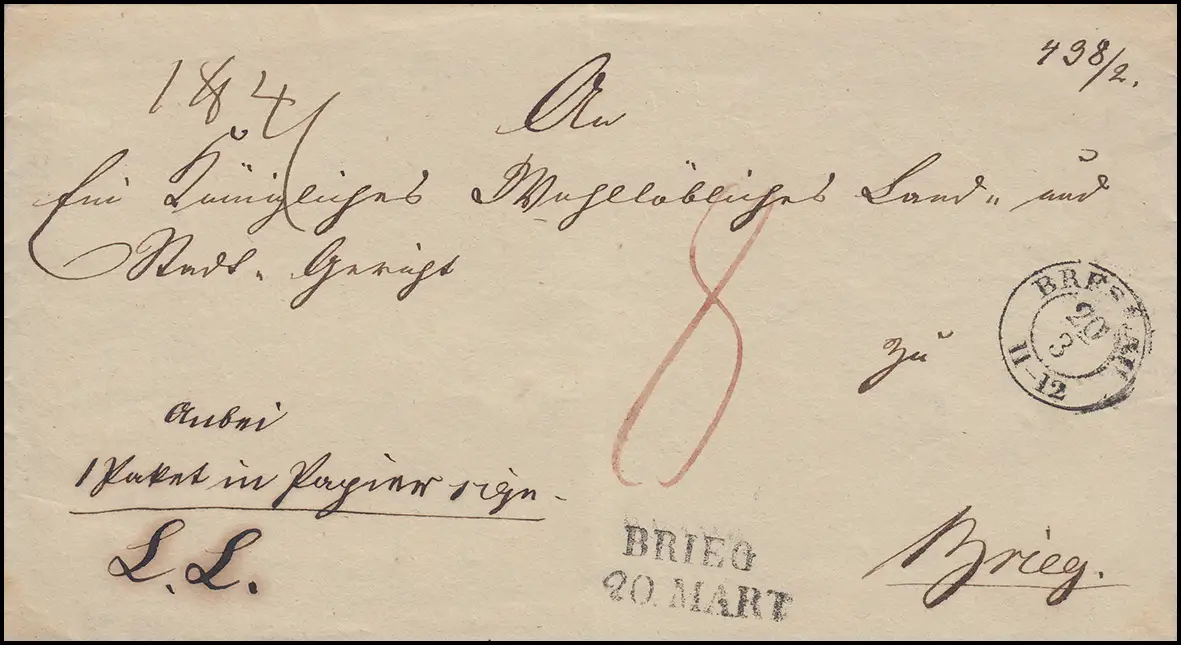 438/2.
184
An
Ein Königliches Wohllöbliches Land- und
Stadt- Gericht
zu
BRESLAU
20
3
11-12
8
Anbei
1 Paket in Papier sign
L. L.
BRIEG
20. MART
Brieg.